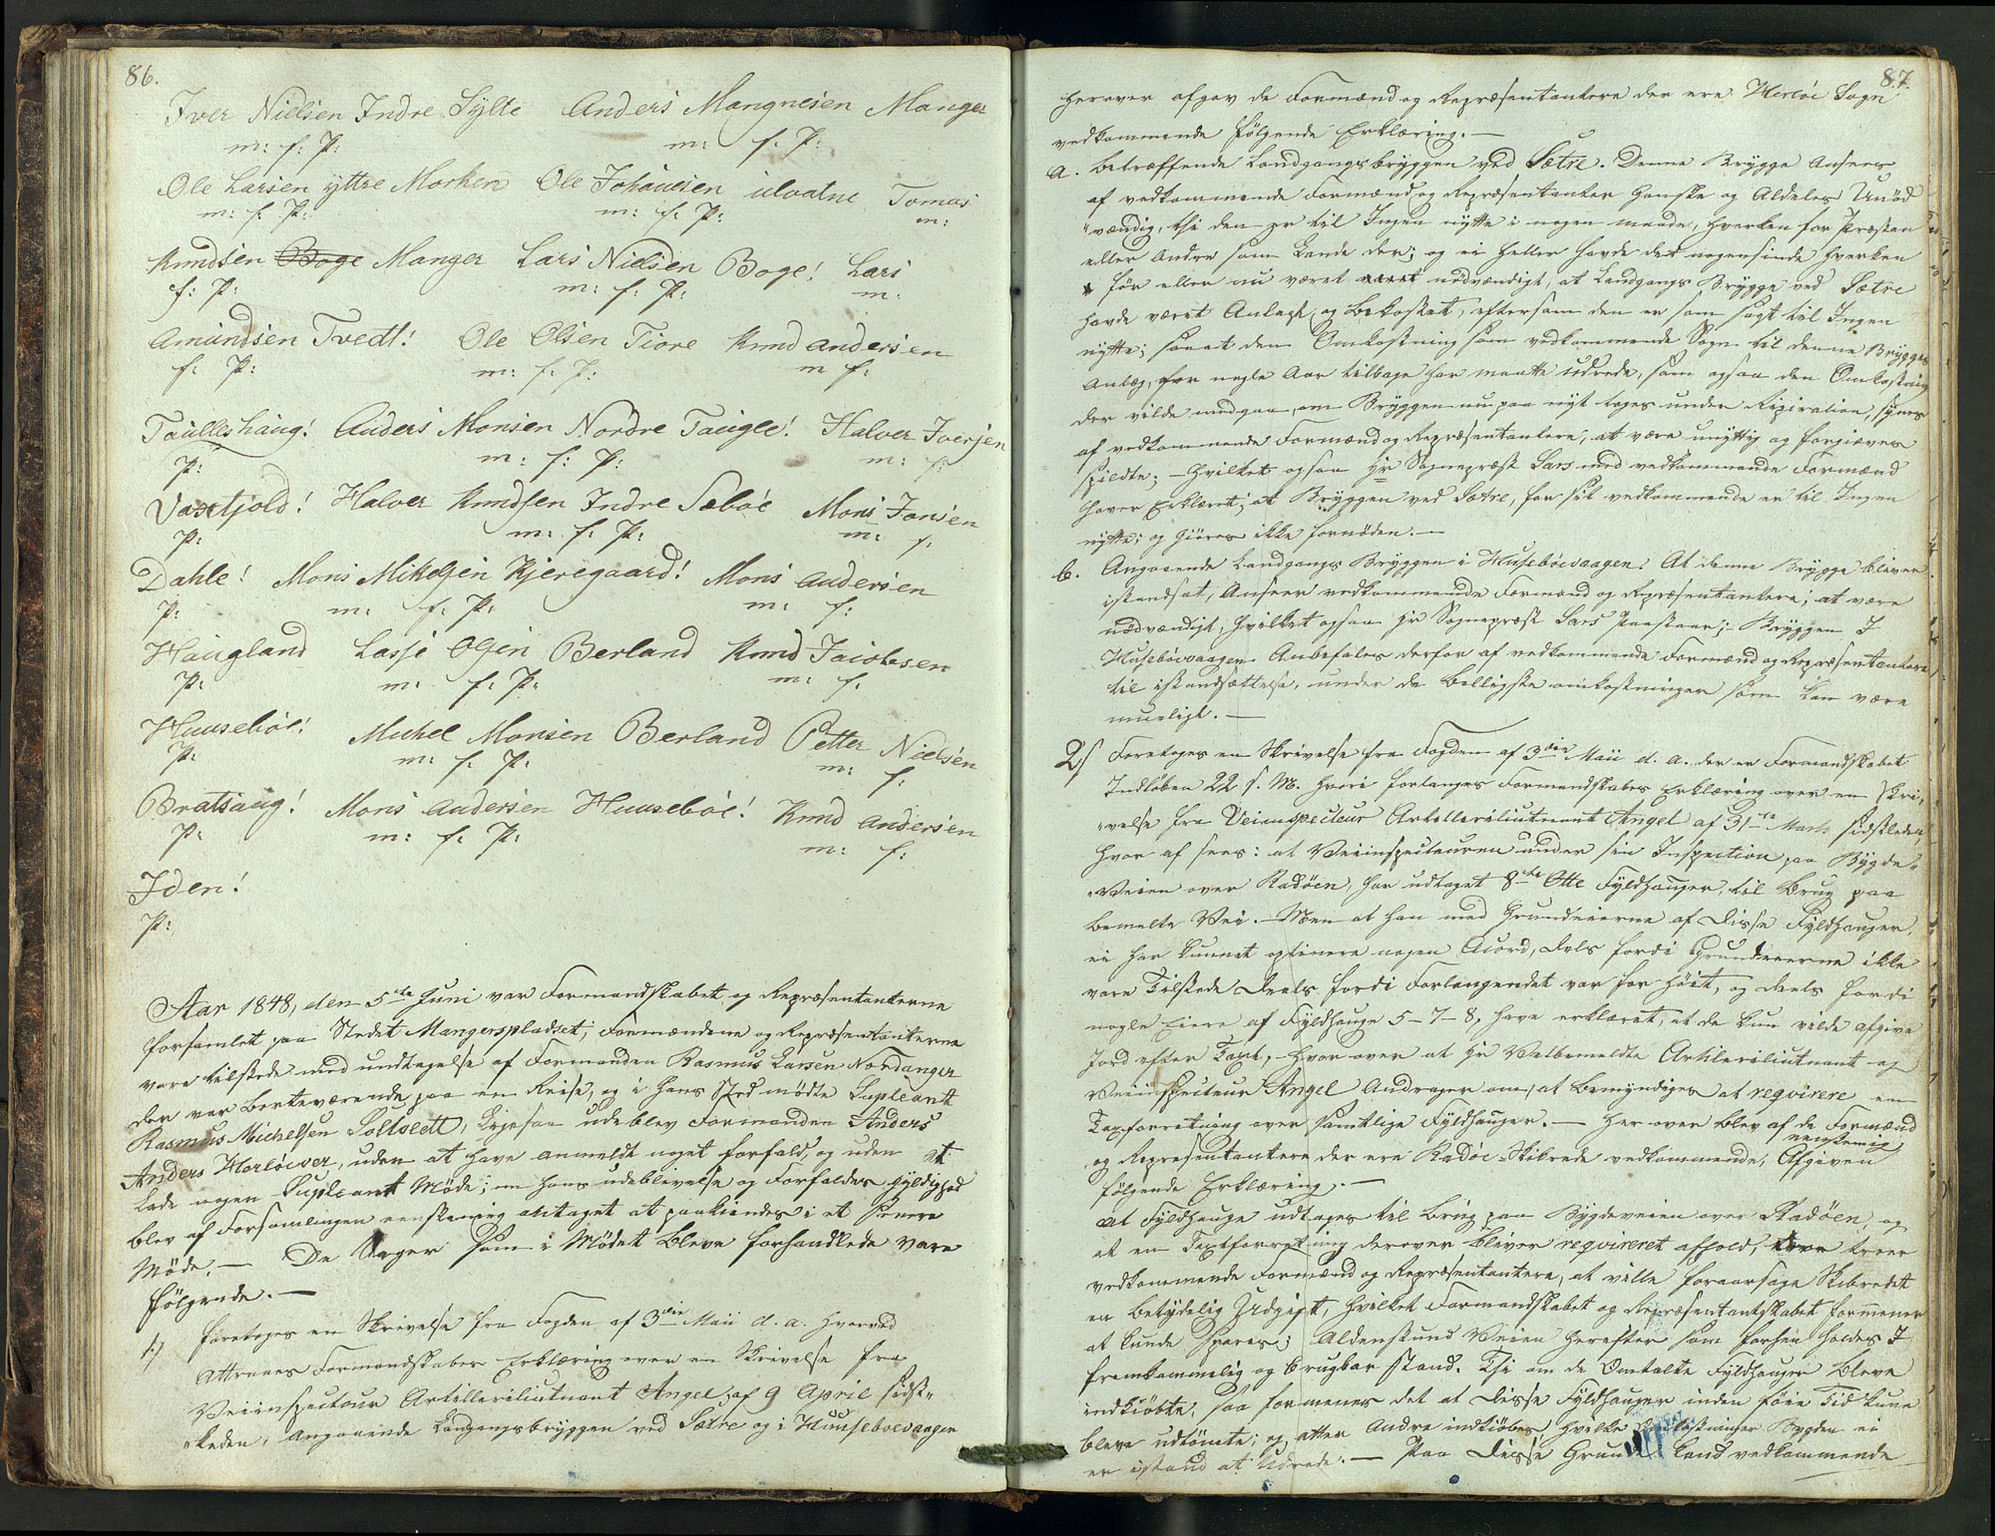 86.
Iver Nielsen Indre Sylte Anders Mangnesen Manger
m: f: P: m: f. P:
Ole Larsen yttre Morken Ole Johannesen ulvatne Tomas
m: f: P: m: f: P: m:
Knudsen Boge Manger Lars Nielsen Boge! Lars
f: P: m: f: P: m:
Amundsen Tvedt! Ole Olsen Tiore Knud andersen
f: P: m: f: P: m f:
Taulleshaug! Anders Monsen Nordre Taugle! Halver Iversen
P: m: f: P: m: f:
Vaxtjold! Halver Knudsen Indre Sæbøe Mons Jonsen
P: m: f: P: m: f:
Dahle! Mons Mikelsen Kjeregaard! Mons andersen
P: m: f: P: m: f:
Haugland Lasse Olsen Berland Knud Jacobsen
P: m: f: P: m: f:
Huusebøe! Michel Monsen Berland Petter Nielsen
P: m: f: P: m: f:
Bratsaug! Mons andersen Huusebøe! Knud andersen
P: m: f: P: m: f:
Iden!
P:
Aar 1848, den 5te Juni var Formandskabet og Repræsentanterne
forsamlet paa Stedet Mangerspladset; Formændene og Repræsentanterne
vare tilstede med undtagelse af Formanden Rasmus Larsen Nordanger
der var borteværende paa en Reise, og i hans Sted mødte Supleant
Rasmus Michelsen Soltvedt, Ligesaa udeblev Formanden Anders
Anders Herløever, uden at have anmeldt noget forfald, og uden at
lade nogen Supleant Møde; om hans udeblivelse og Forfaldes gyldighed
blev af Forsamlingen eenstemig antaget at paakiendes i et senere
Møde. — De Sager som i Mødet bleve forhandlede vare
følgende. —
1) foretoges en Skrivelse fra Fogden af 3die Maii d. a. hvorved
attraaes Formandskabets Erklæring over en Skrivelse fra
Veiinspecteur Artilleriliutnant Angel af 9 April sidst-
leden, angaaende Landgangsbryggen ved Sætre og i Huusebøevaagen
87.
herover afgav de Formænd og Repræsentantere der ere Herløe Sogn
vedkommende følgende Erklæring. —
a. Betræffende Landgangsbryggen ved Sætre. Denne Brygge ansees
af vedkommende Formænd og Repræsentanter Ganske og Aldeles Unød
vændig, thi den er til Ingen nytte i nogen maade, hverken for Præsten
eller Andre som Lande der; og ei heller havde det nogensinde hverken
før eller nu været nødvændigt, at Landgangs Brygge ved Sætre
havde været Anlagt og bekostet, eftersom den er som sagt til Ingen
nytte; saavel den Omkostning som vedkommende Sogn til denne Brygges
anlæg, for nogle Aar tilbage har maatte udrede, som ogsaa den Omkostning
der vilde medgaa, om Bryggen nu paa nyt toges under Repiration, synes
af vedkommende Formænd og Repræsentantere, at være unyttig og forgiæves
spildte; – hvilket ogsaa Hr Sognepræst Sars med vedkommende Formænd
haver Erklæret; at Bryggen ved Sætre, for sit vedkommende er til Ingen
nytte; og Giøres ikke fornøden. —
b. Angaaende Landgangs Bryggen i Husebøevaagen: At denne Brygge bliver
istandsat, Anseer vedkommende Formænd og Repræsentantere; at være
nødvændigt, hvilket ogsaa Hr Sognepræst Sars paastaaer; – Bryggen I
Husebøevaagen Anbefales derfor af vedkommende Formænd og Repræsentantere
til istandsættelse, under de billigste omkostninger som kan være
mueligt. —
2) Foretoges en Skrivelse fra Fogden af 3die Maii d. a. der er Formandskabet
Indløben 22 s. M. hvori forlanges Formandskabets Erklæring over en Skri-
velse fra Veiinspecteur Artilleriliutnant Angel af 31te Marts sidstleden,
hvor af sees: at Veiinspecteuren under sin Inspection paa Bygde-
Veien over Radøen, har udtaget 8te Otte Fyldhauger, til Brug paa
bemelte Vei. – Men at han med Grundeierne af disse Fyldhauger
ei har kunnet optinere nogen Acord, dels fordi Grundeierne ikke
vare Tilstede deels fordi Forlangendet var for høit, og deels fordi
nogle Eiere af Fyldhauge 5–7–8, have erklæret, at de kun vilde afgive
Jord efter Taxt, – hvor over at Hr Velbemeldte Artileriliutnant og
Veiinspecteur Angel Andrager om, at bemyndiges at reqvirere en
Taxforretning over samtlige Fyldhauger. — Her over blev af de Formænd
og Representantere der ere Radøe-Skibrede vedkommende, eenstemig Afgiven
følgende Erklæring. —
at Fyldhauge udtages til brug paa Bygdeveien over Radøen, og
at en Taxtforretning derover bliver reqvireret afhold, troer
vedkommende Formænd og Repræsentantere, at ville foraarsage Skibredet
en betydelig Udgift, hvilket Formandskabet og Repræsentantskabet formener
at kunde spares; Aldenstund Veien herefter som forhen holdes I
fremkommelig og brugbar stand. Thi om de Omtalte Fyldhauger bleve
indkiøbte, saa formenes det at disse Fyldhauger inden føie Tid kune
bleve udtømte; og atter Andre indkiøbes hvilke Bekostninger Bygden ei
er istand at Udrede. — Paa disse Grunde kand vedkommende